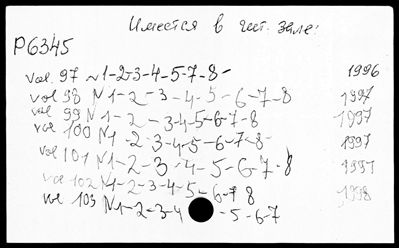 Имеется в чит. зале:
P6345
vol. 97 N1-2-3-4-5-7-8- 1996
vol 98 N1-2-3-4-5-6-7-8 1997
vol 99 N1-2-3-4-5-6-7-8 1997
vol 100 N1-2-3-4-5-6-7-8- 1997
vol 101 N1-2-3-4-5-6-7-8 1997
vol 102 N1-2-3-4-5-6-7 8 1998
vol 103 N1-2-3-4 -5-6-7